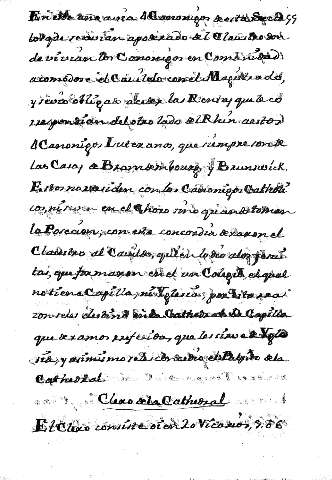 En este una avia 4 Canonigos de esta Sec
los que se avian apoderado del Claustro
de vivian los Canonigos en Comunidad
acomodose el Cavildo con el Magistrado,
y se vio obligado a ceder las Rentas que le co
respondian del otro lado del Rhin a estos
4 Canonigos Luterano, que siempre son de
las Casas de Brandembourg, y Brunswick.
Estos no residen con los Canonigos Catholi
cos, ni sirven en el Choro sino quando toman
la Posesion, con esta concordia dexaron el
Claustro al Cavildo, quien lo dio a los Jesui
tas, que formaron en el un Colegio, el qual
no tiene Capilla, ni Iglesia; por esta ra
zon se les destinó en la Cathedral la Capilla
que dexamos referida, que les sirve de Igle
sia, y asimismo se les concedio el Pulpito de la
Cathedral.
Clero de la Cathedral
El Clero consiste oi en 20 Vicarios, y